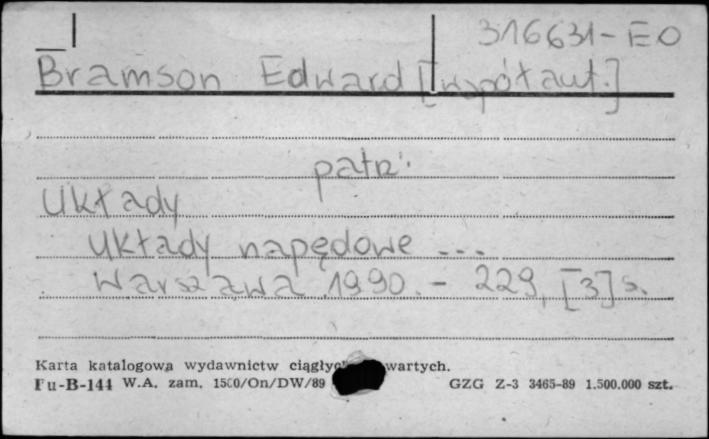 316631-EO
Bramson Edward [współaut.]
patrz:
Układy
Układy napędowe ...
Warszawa 1990. - 229, [3] s.
Karta katalogowa wydawnictw wartych.
Fu-B-144 W.A. zam. 1500/On/DW/89 GZG Z-3 3465-89 1.500.000 szt.